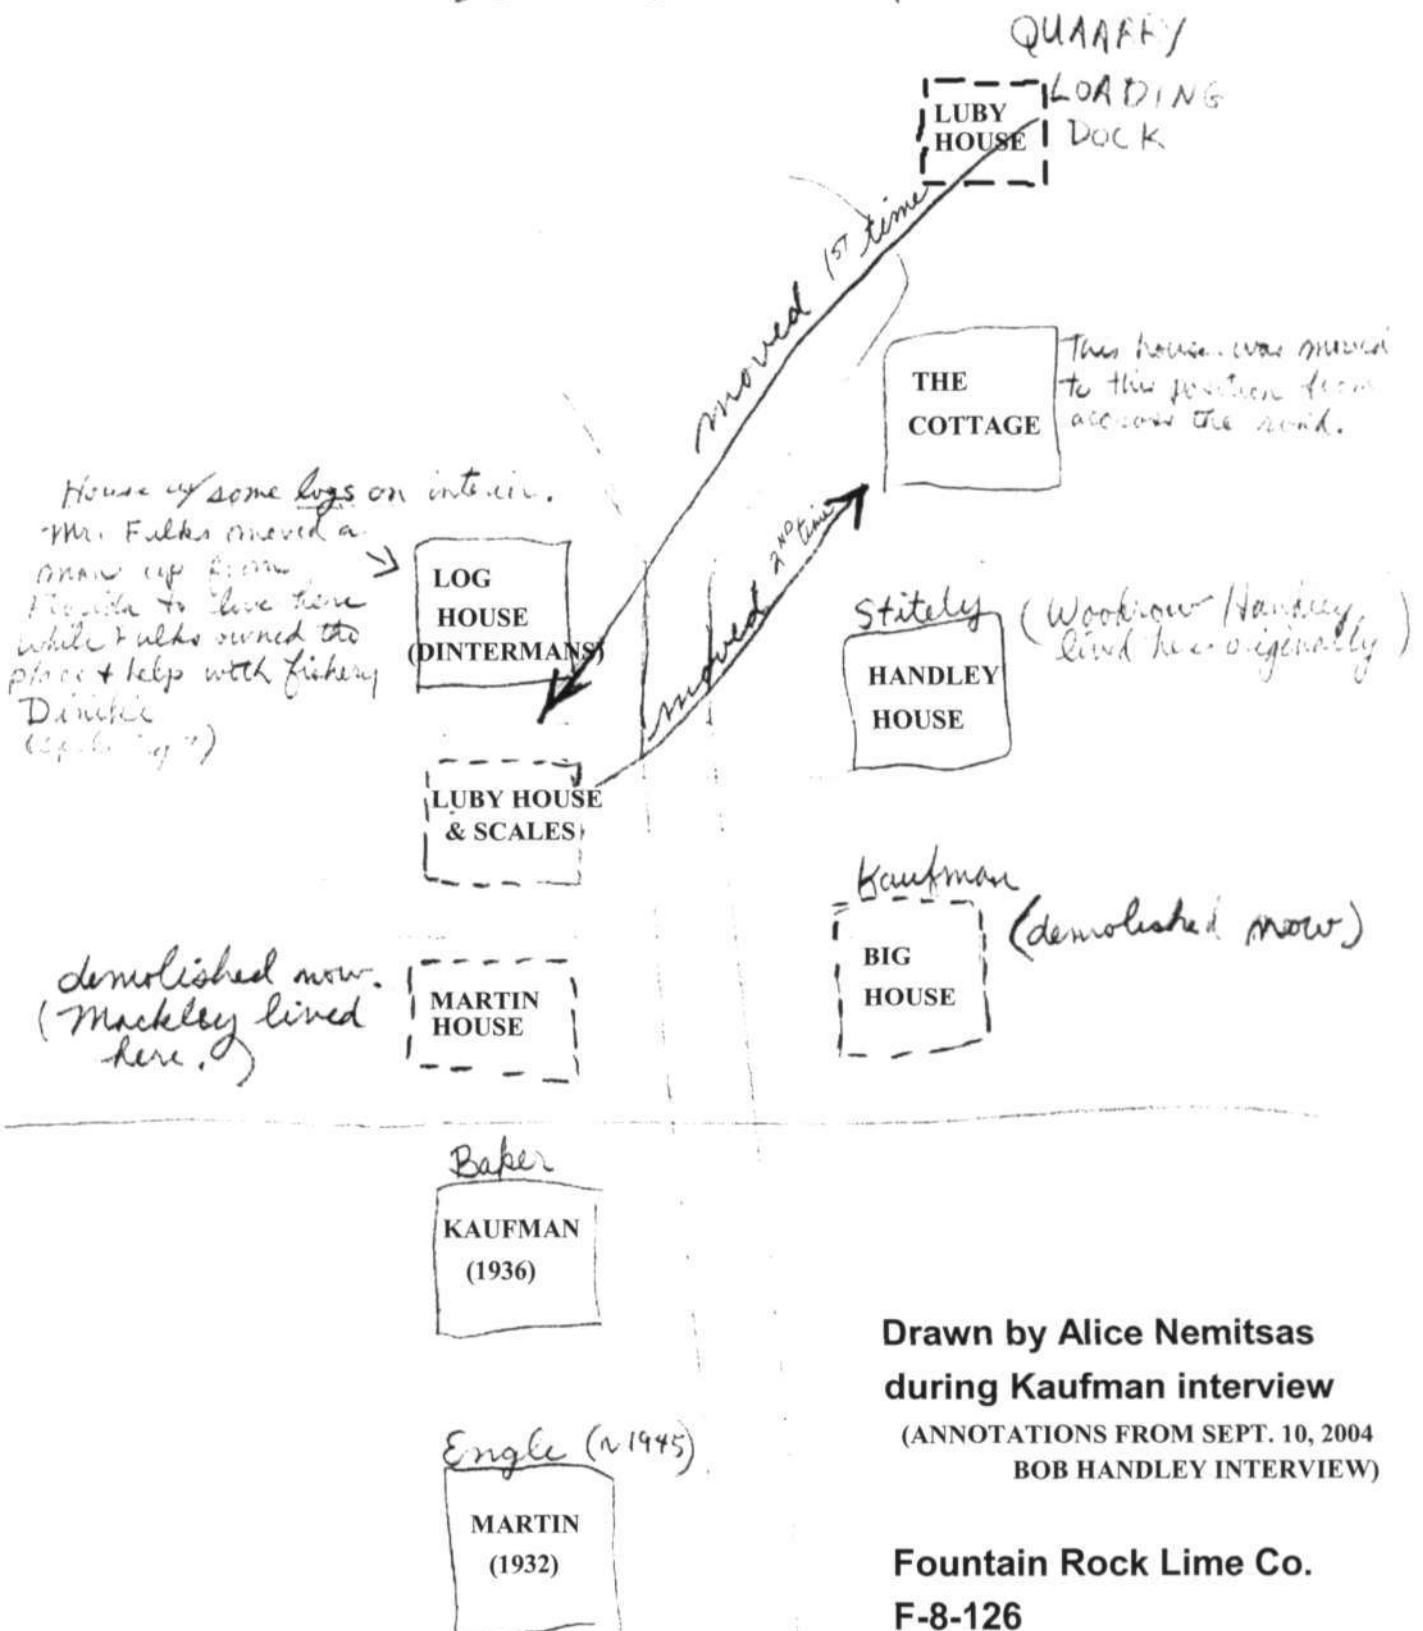 QUARRY
LOADING
DOCK
LUBY
HOUSE
moved 1ST time
THE
COTTAGE
This house was moved
to this position from
accross the road.
House w/ some logs on interior.
Mr. Fulks moved a
man up from
Florida to live here
while Fulks owned the
place & help with fishery
LOG
HOUSE
(DINTERMANS)
moved 2ND time
Stitely (Woodrow Handley
lived here origenally)
HANDLEY
HOUSE
LUBY HOUSE
& SCALES
Kaufman
(demolished now)
BIG
HOUSE
demolished now.
(Mackley lived
here.)
MARTIN
HOUSE
Baker
KAUFMAN
(1936)
Engle (~1945)
MARTIN
(1932)
Drawn by Alice Nemitsas
during Kaufman interview
(ANNOTATIONS FROM SEPT. 10, 2004
BOB HANDLEY INTERVIEW)
Fountain Rock Lime Co.
F-8-126